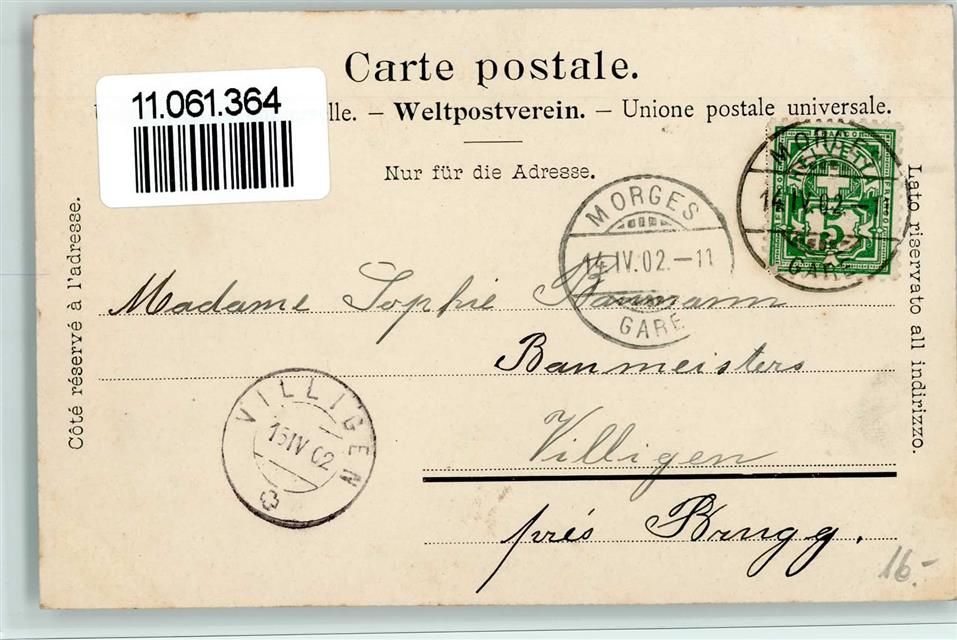 Carte postale.
11.061.364
lle. – Weltpostverein. – Unione postale universale.
Nur für die Adresse.
Côté réservé à l'adresse.
Lato riservato all indirizzo.
MORGES
14 IV. 02. – 11
GARE
HELVETIA
FRANCO
5
GARE
Madame Sophie Baumann
Baumeisters
Villigen
près Brugg.
VILLIGEN
15 IV 02
16.-